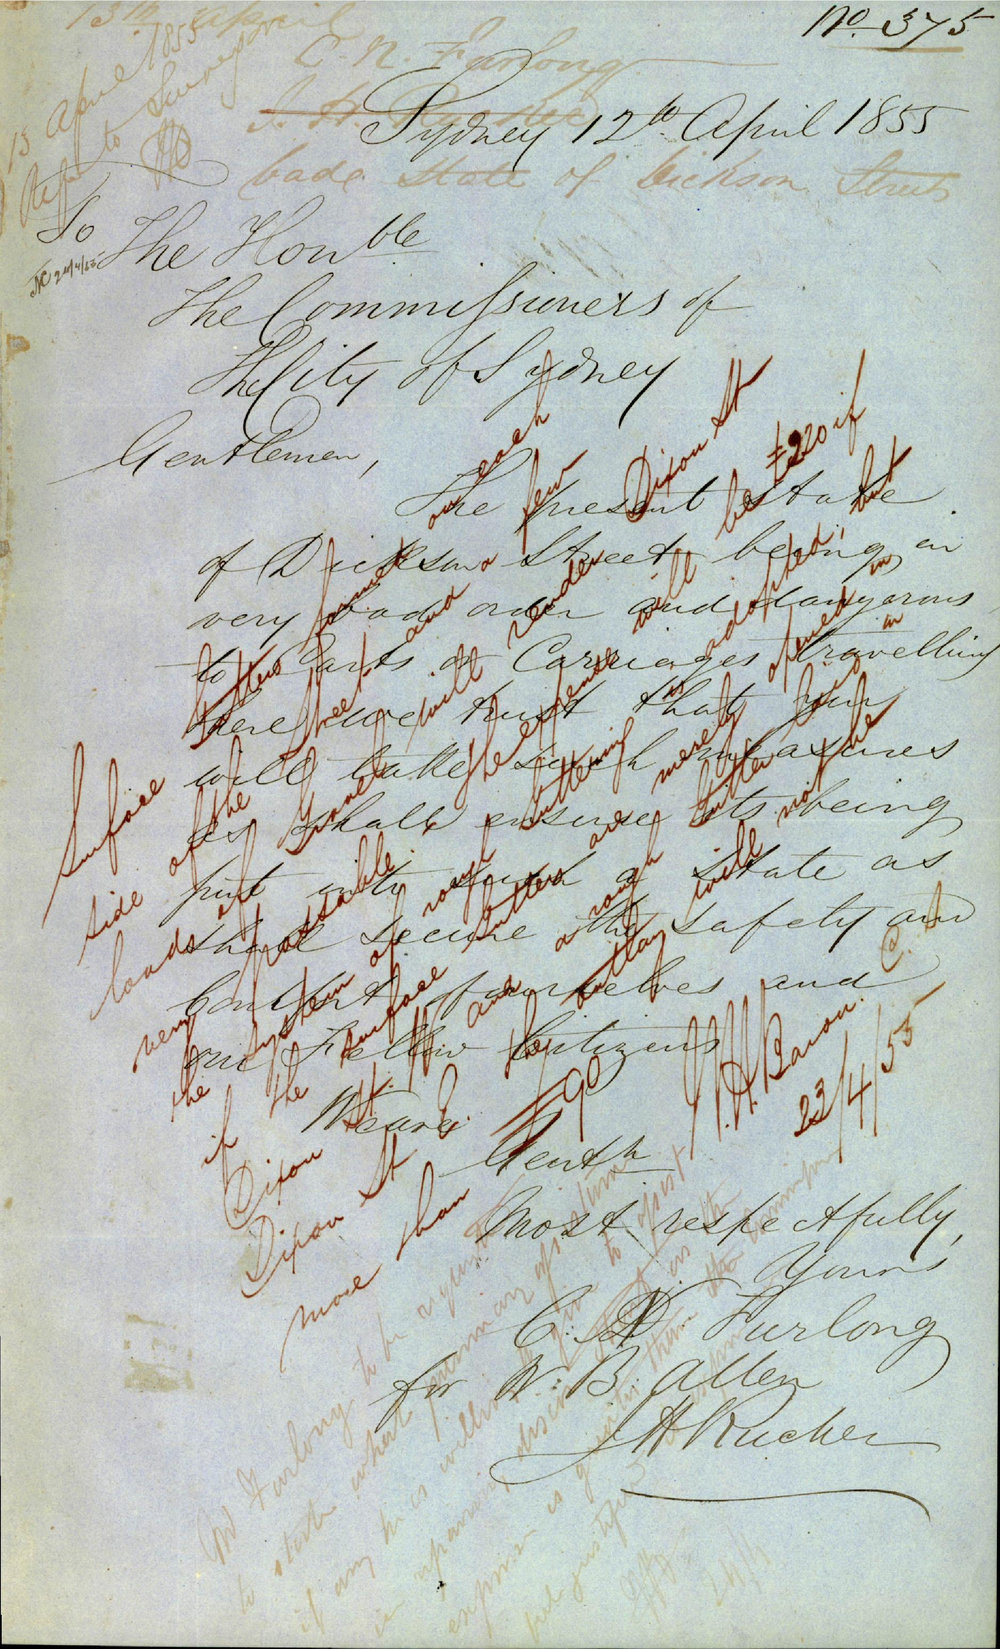 No 375
13th April
C. N. Furlong
J. H. Rucker
bade State of Dickson Street
13 April 1855
Refd to Surveyor
Sydney 12th April 1855
To
The Honble
The Commissioners of
The City of Sydney
Gentlemen,
The present state
of Dickson Street being in
very bad order and dangerous
to Carts or Carriages travelling
there we trust that you
will take such measures
as shall ensure its being
put into such a state as
shall secure the safety and
Comfort of ourselves and
our Fellow Citizens
We are
Gentn
Most respectfully,
Yours
C. N. Furlong
for W: B: Allen
J H Rucker
Surface Gutters formed on each
side of the Street and a few
loads of Gravel will render Dixon St
very passable. The expense will be £220 if
the system of rough guttering is adopted, but
if the surface Gutters are merely opened in
Dixon St. W and a rough Gutter laid in
Dixon St E. the outlay will not be
more than £90
W. H. Baron. C. S
23/4/55
Mr Furlong to be requested
to state what pecuniary assistance
if any he is willing to give to assist
in repairing Dixon Street as the
expense is greater than the
24/4